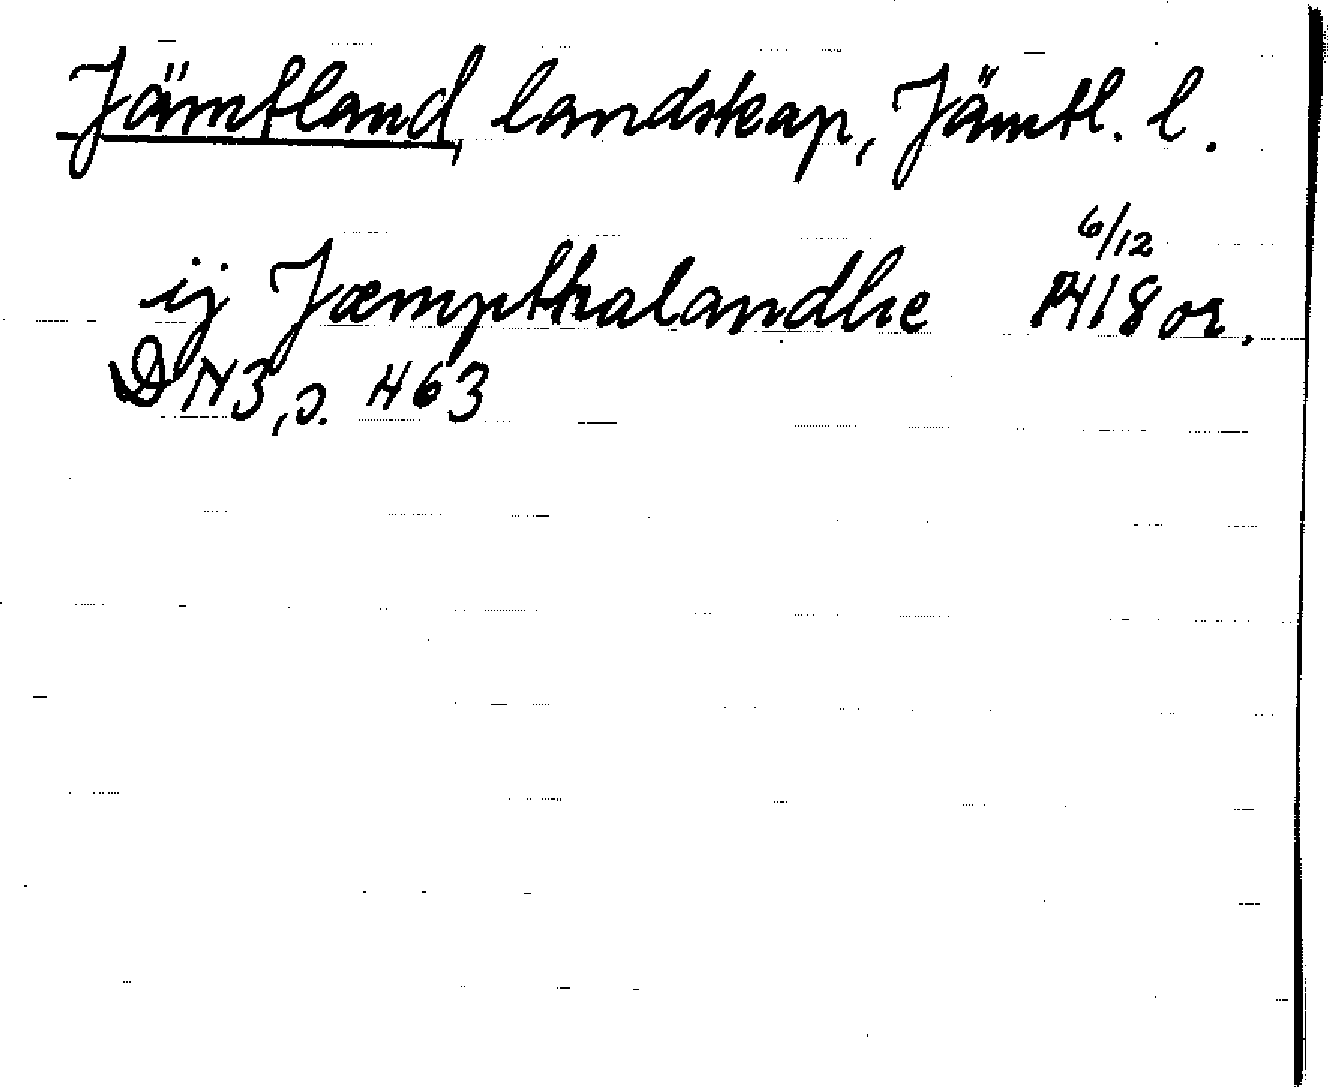 Jämtland, landskap, Jämtl. l.
ij Jæmpthalandhe 6/12 1418 or.
DN 3, s. 463